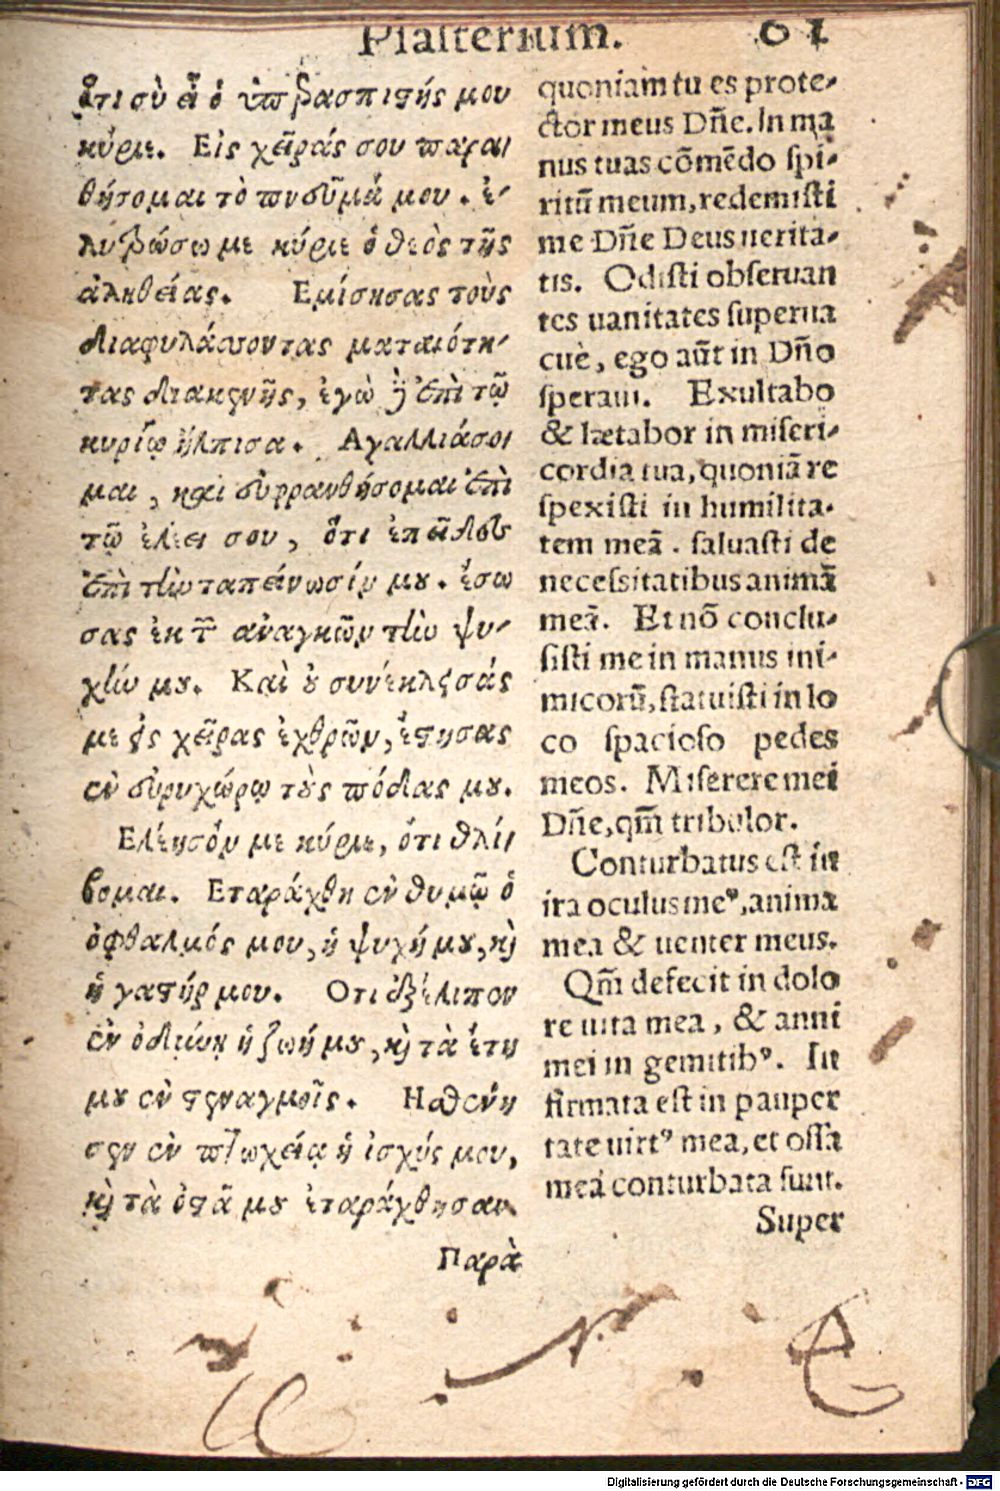 Psalterium. 61
ὅτι σὺ εἶ ὁ ὑπερασπιστής μου
κύριε. Εἰς χεῖράς σου παρα-
θήσομαι τὸ πνεῦμά μου. ἐ-
λυτρώσω με κύριε ὁ θεὸς τῆς
ἀληθείας. Εμίσησας τοὺς
διαφυλάσσοντας ματαιότη-
τας διακενῆς, ἐγὼ δὲ ἐπὶ τῷ
κυρίῳ ἤλπισα. Αγαλλιάσο-
μαι, καὶ εὐφρανθήσομαι ἐπὶ
τῷ ἐλέει σου, ὅτι ἐπεῖδες
ἐπὶ τὴν ταπείνωσίν μου. ἔσω
σας ἐκ τῶν ἀναγκῶν τὴν ψυ-
χήν μου. Καὶ οὐ συνέκλεισάς
με εἰς χεῖρας ἐχθρῶν, ἔστησας
ἐν εὐρυχώρῳ τοὺς πόδας μου.
Ελέησόν με κύριε, ὅτι θλί-
βομαι. Εταράχθη ἐν θυμῷ ὁ
ὀφθαλμός μου, ἡ ψυχή μου, καὶ
ἡ γαστήρ μου. Οτι ἐξέλιπον
ἐν ὀδύνῃ ἡ ζωή μου, καὶ τὰ ἔτη
μου ἐν στεναγμοῖς. Ησθένη
σεν ἐν πτωχείᾳ ἡ ἰσχύς μου,
καὶ τὰ ὀστᾶ μου ἐταράχθησαν.
Παρὰ
quoniam tu es prote-
ctor meus Dñe. In ma
nus tuas cõmẽdo spi-
ritũ meum, redemisti
me Dñe Deus uerita-
tis. Odisti obseruan
tes uanitates superua
cuè, ego aũt in Dño
speraui. Exultabo
& lætabor in miseri-
cordia tua, quoniã re
spexisti in humilita-
tem meã. saluasti de
necessitatibus animã
meã. Et nõ conclu-
sisti me in manus ini-
micorũ, statuisti in lo
co spacioso pedes
meos. Miserere mei
Dñe, qm̃ tribulor.
Conturbatus est in
ira oculus meꝰ, anima
mea & uenter meus.
Qm̃ defecit in dolo
re uita mea, & anni
mei in gemitibꝰ. In
firmata est in pauper
tate uirtꝰ mea, et ossa
mea conturbata sunt.
Super
Digitalisierung gefördert durch die Deutsche Forschungsgemeinschaft - DFG